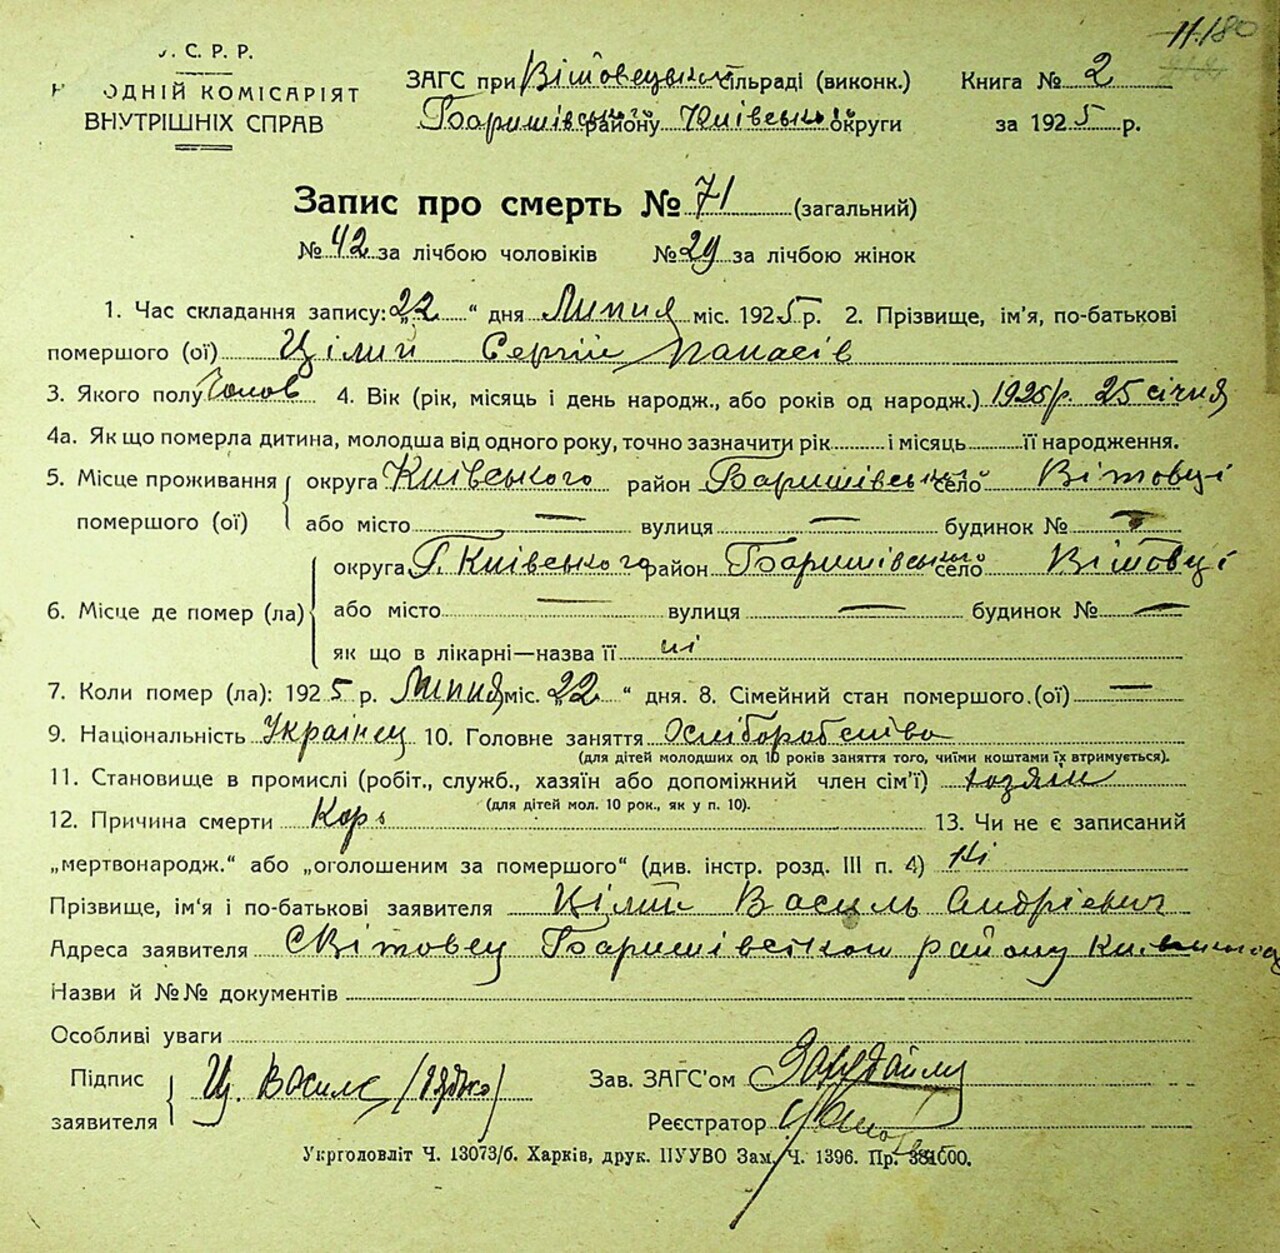 С. Р. Р.
ОДНІЙ КОМІСАРІЯТ
ВНУТРІШНІХ СПРАВ
11.180
ЗАГС при Вітовецькій сільраді (виконк.) Книга № 2
Баришівського району Київської округи за 1925 р.
Запис про смерть № 71 (загальний)
№ 42 за лічбою чоловіків № 29 за лічбою жінок
1. Час складання запису: „22“ дня Липня міс. 1925 р. 2. Прізвище, ім'я, по-батькові
помершого (ої) Цілий Сергій Панасів
3. Якого полу Чолов 4. Вік (рік, місяць і день народж., або років од народж.) 1925 р. 25 січня
4а. Як що померла дитина, молодша від одного року, точно зазначити рік і місяць її народження.
5. Місце проживання помершого (ої) округа Київського район Баришівського село Вітовці
або місто — вулиця — будинок № —
6. Місце де помер (ла) округа Київського район Баришівського село Вітовці
або місто — вулиця — будинок № —
як що в лікарні—назва її ні
7. Коли помер (ла): 1925 р. Липня міс. „22“ дня. 8. Сімейний стан помершого (ої) —
9. Національність Українец 10. Головне заняття Хліборобство
(для дітей молодших од 10 років заняття того, чиїми коштами їх втримується).
11. Становище в промислі (робіт., служб., хазяїн або допоміжний член сім'ї) хозяин
(для дітей мол. 10 рок., як у п. 10).
12. Причина смерти Корь 13. Чи не є записаний
„мертвонародж.“ або „оголошеним за помершого“ (див. інстр. розд. III п. 4) Ні
Прізвище, ім'я і по-батькові заявителя Цілий Василь Андрієвич
Адреса заявителя С Вітовец Баришівської району
Назви й №№ документів
Особливі уваги
Підпис заявителя Ц. Василь Зав. ЗАГС'ом
Реєстратор
Укрголовліт Ч. 13073/б. Харків, друк. ПУУВО Зам. Ч. 1396. Пр. 381600.